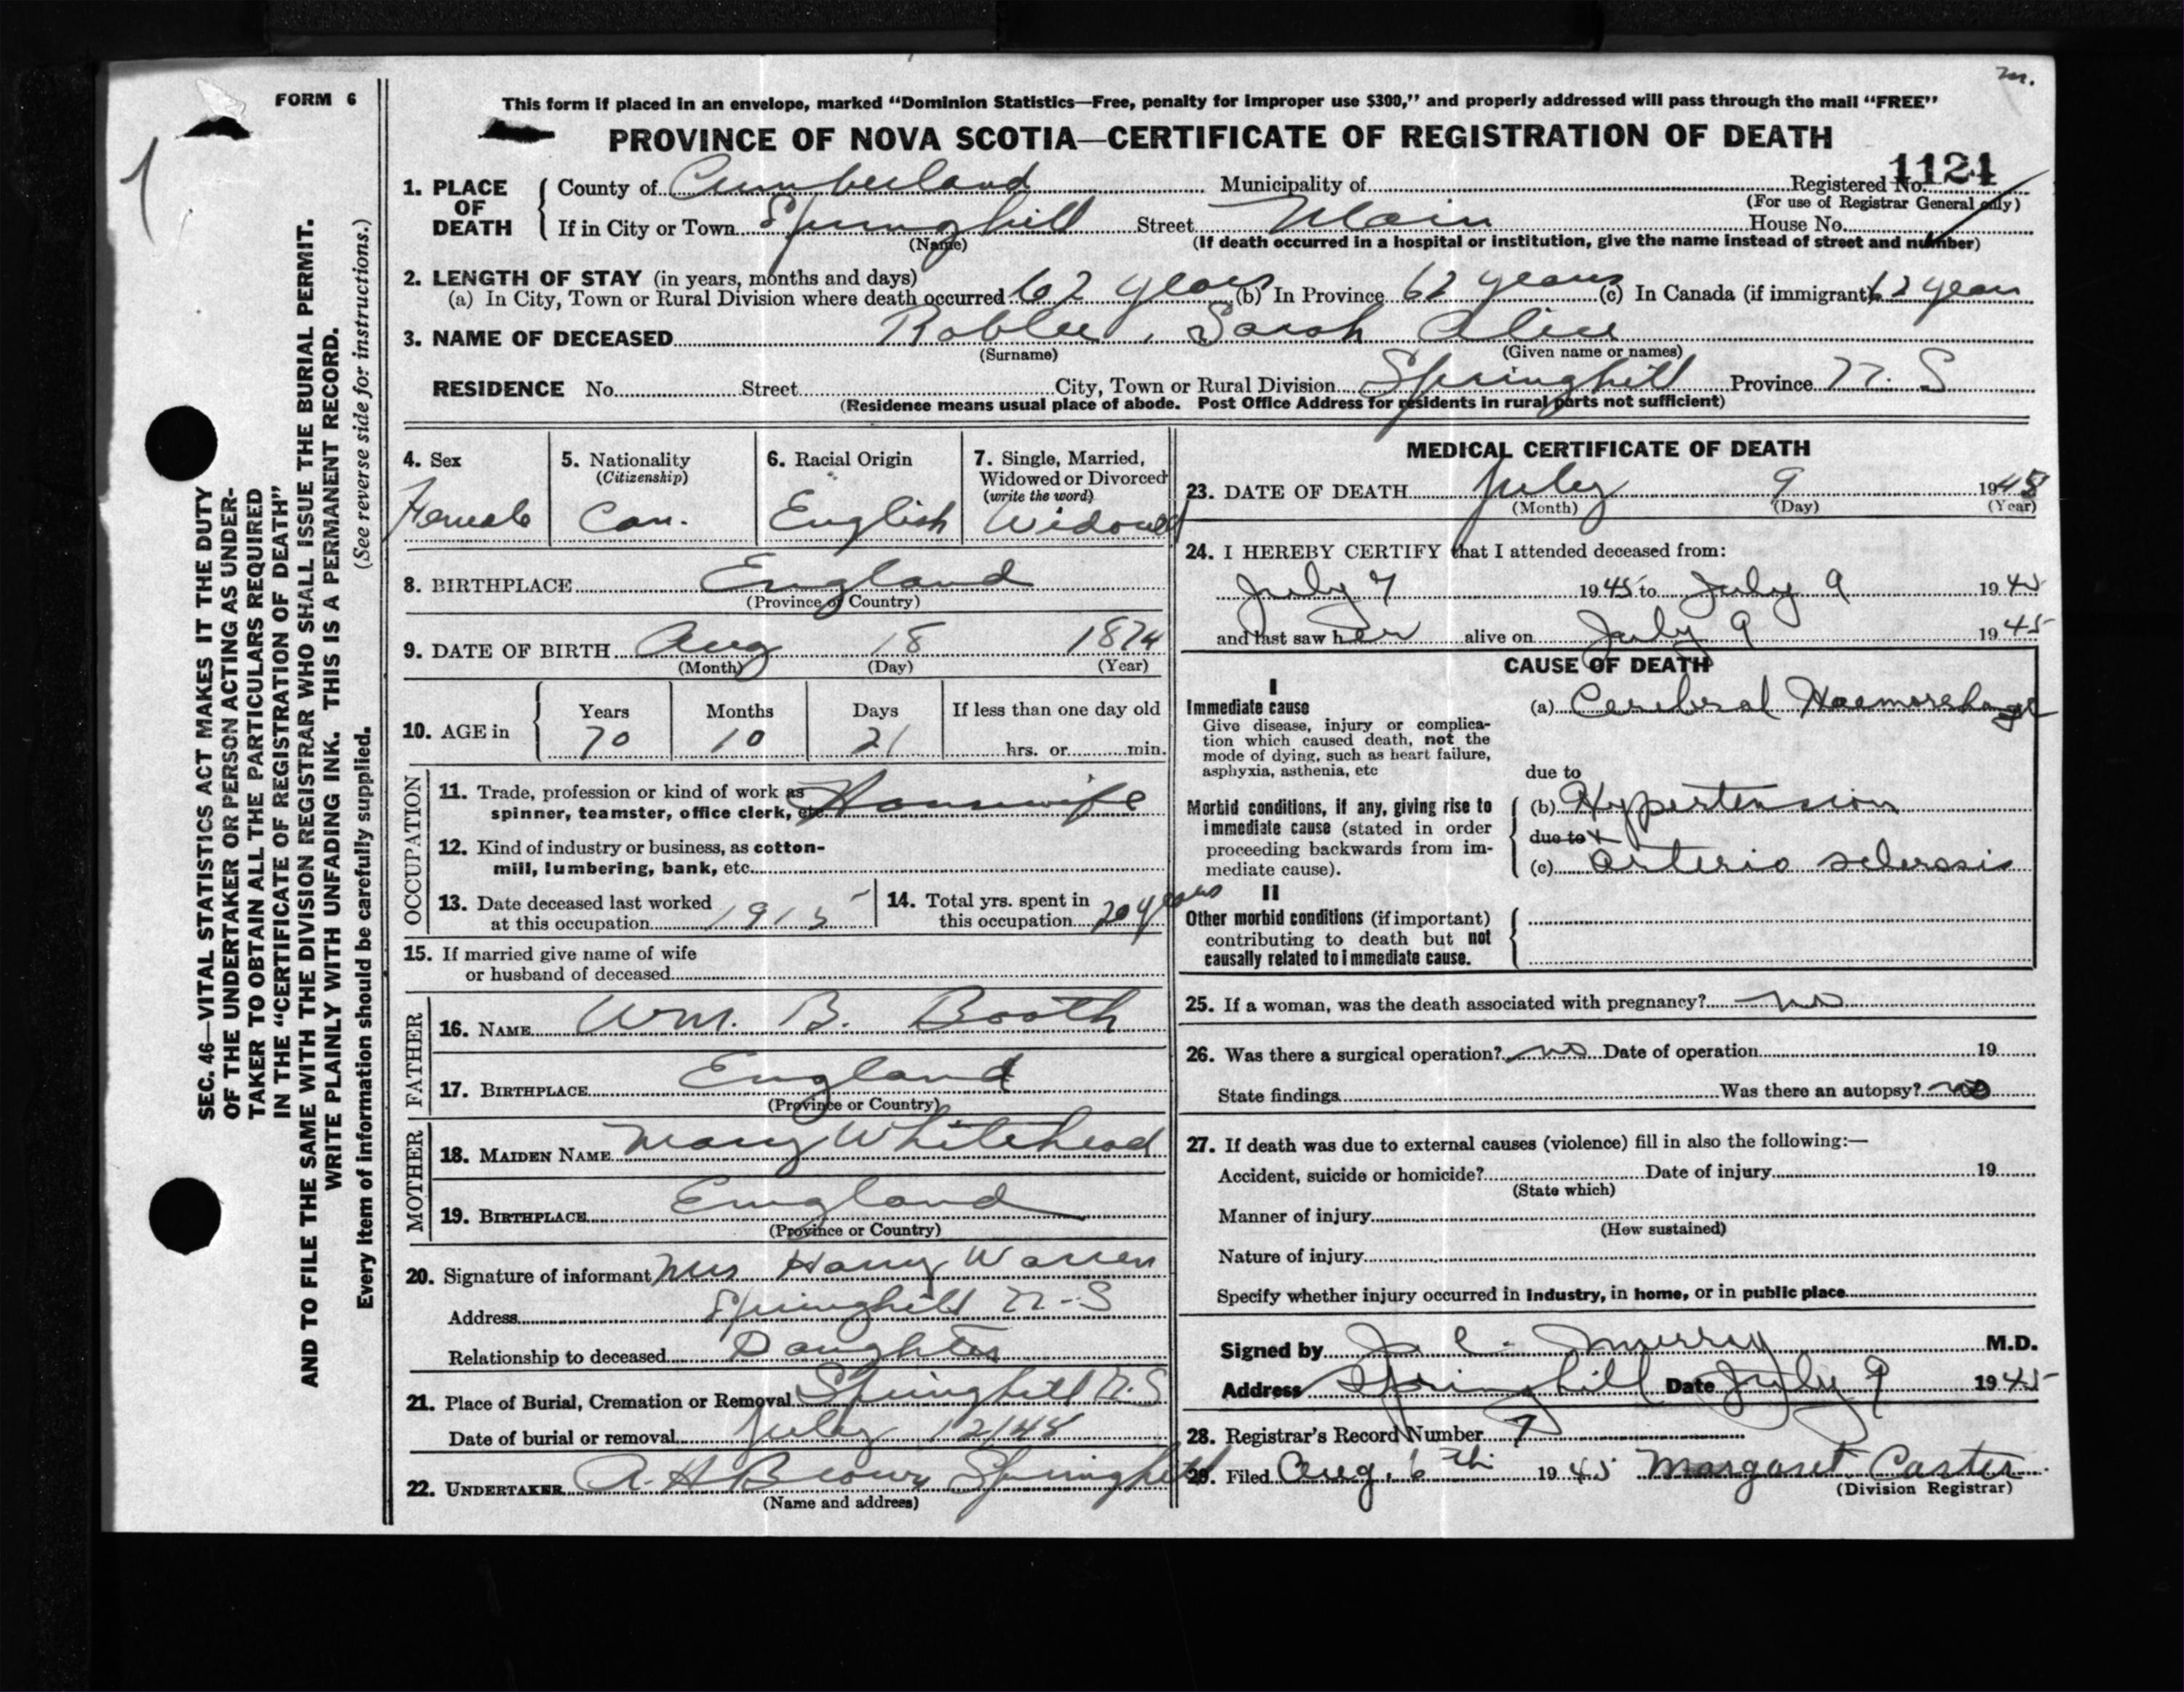 m.
FORM 6
This form if placed in an envelope, marked “Dominion Statistics—Free, penalty for improper use $300,” and properly addressed will pass through the mail “FREE”
PROVINCE OF NOVA SCOTIA—CERTIFICATE OF REGISTRATION OF DEATH
1124
1. PLACE OF DEATH
County of Cumberland Municipality of Registered No.
(For use of Registrar General only)
If in City or Town Springhill Street Main House No.
(Name)
(If death occurred in a hospital or institution, give the name instead of street and number)
2. LENGTH OF STAY (in years, months and days)
(a) In City, Town or Rural Division where death occurred 62 years (b) In Province 62 years (c) In Canada (if immigrant) 62 years
3. NAME OF DECEASED Roblee, Sarah Alice
(Surname) (Given name or names)
RESIDENCE No. Street City, Town or Rural Division Springhill Province N. S
(Residence means usual place of abode. Post Office Address for residents in rural parts not sufficient)
4. Sex
Female
5. Nationality
(Citizenship)
Can.
6. Racial Origin
English
7. Single, Married,
Widowed or Divorced
(write the word)
Widowed
8. BIRTHPLACE England
(Province or Country)
9. DATE OF BIRTH Aug 18 1874
(Month) (Day) (Year)
10. AGE in
Years Months Days If less than one day old
70 10 21 hrs. or min.
OCCUPATION
11. Trade, profession or kind of work as
spinner, teamster, office clerk, etc. Housewife
12. Kind of industry or business, as cotton-
mill, lumbering, bank, etc.
13. Date deceased last worked
at this occupation 1915
14. Total yrs. spent in
this occupation 20 years
15. If married give name of wife
or husband of deceased
FATHER
16. NAME Wm. B. Booth
17. BIRTHPLACE England
(Province or Country)
MOTHER
18. MAIDEN NAME Mary Whitehead
19. BIRTHPLACE England
(Province or Country)
20. Signature of informant Mrs Harry Warren
Address Springhill N-S
Relationship to deceased Daughter
21. Place of Burial, Cremation or Removal Springhill N.S
Date of burial or removal July 12/45
22. UNDERTAKER A. H Brown Springhill
(Name and address)
MEDICAL CERTIFICATE OF DEATH
23. DATE OF DEATH July 9 1945
(Month) (Day) (Year)
24. I HEREBY CERTIFY that I attended deceased from:
July 7 1945 to July 9 1945
and last saw her alive on July 9 1945
CAUSE OF DEATH
I
Immediate cause
Give disease, injury or complica-
tion which caused death, not the
mode of dying, such as heart failure,
asphyxia, asthenia, etc
(a) Cerebral Haemorrhage
due to
Morbid conditions, if any, giving rise to
immediate cause (stated in order
proceeding backwards from im-
mediate cause).
(b) Hypertension
due to +
(c) Arterio sclerosis
II
Other morbid conditions (if important)
contributing to death but not
causally related to immediate cause.
25. If a woman, was the death associated with pregnancy? no
26. Was there a surgical operation? no Date of operation 19
State findings Was there an autopsy? no
27. If death was due to external causes (violence) fill in also the following:—
Accident, suicide or homicide? Date of injury 19
(State which)
Manner of injury
(How sustained)
Nature of injury
Specify whether injury occurred in industry, in home, or in public place
Signed by J. C. Murray M.D.
Address Springhill Date July 9 1945
28. Registrar's Record Number 7
29. Filed Aug. 6th 1945 Margaret Carter
(Division Registrar)
SEC. 46—VITAL STATISTICS ACT MAKES IT THE DUTY
OF THE UNDERTAKER OR PERSON ACTING AS UNDER-
TAKER TO OBTAIN ALL THE PARTICULARS REQUIRED
IN THE “CERTIFICATE OF REGISTRATION OF DEATH”
AND TO FILE THE SAME WITH THE DIVISION REGISTRAR WHO SHALL ISSUE THE BURIAL PERMIT.
WRITE PLAINLY WITH UNFADING INK. THIS IS A PERMANENT RECORD.
Every item of information should be carefully supplied. (See reverse side for instructions.)